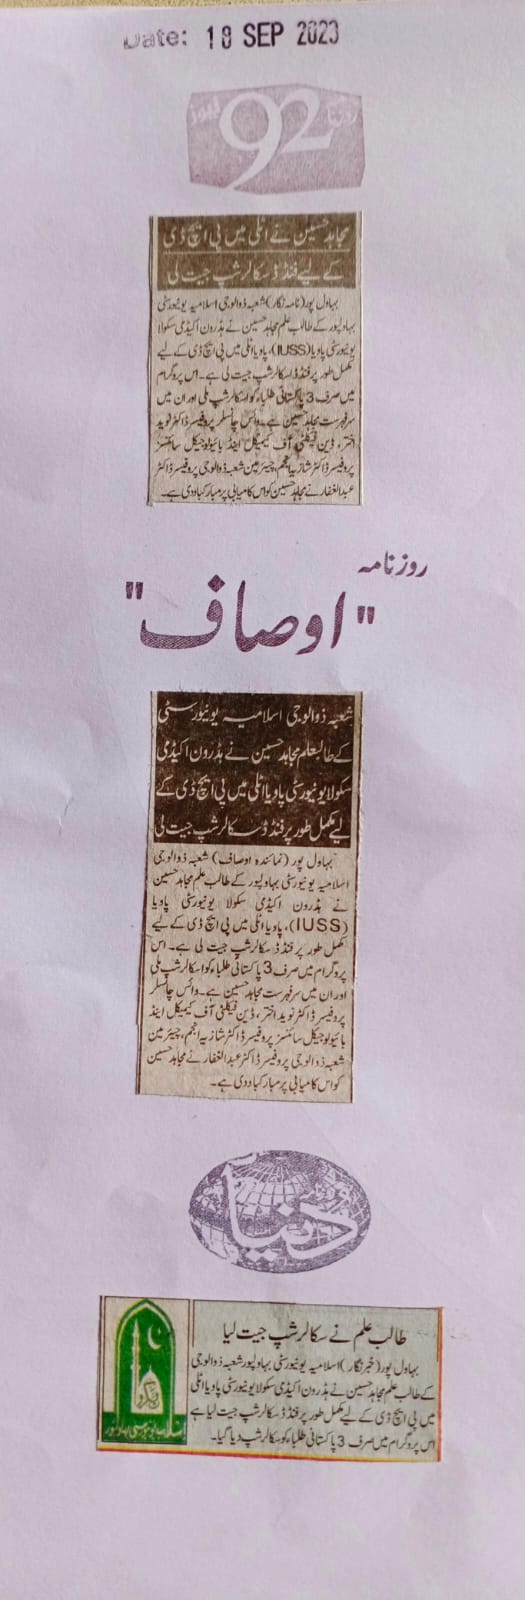 Date: 18 SEP 2023
روزنامہ 92 نیوز
مجاہد حسین نے اٹلی میں پی ایچ ڈی
کے لیے فنڈڈ سکالرشپ جیت لی
بہاول پور (نامہ نگار) شعبہ ذوالوجی اسلامیہ یونیورسٹی
بہاولپور کے طالب علم مجاہد حسین نے ہڈرون اکیڈمی سکولا
یونیورسٹی پاویا (IUSS)، پاویا اٹلی میں پی ایچ ڈی کے لیے
مکمل طور پر فنڈڈ اسکالرشپ جیت لی ہے۔ اس پروگرام
میں صرف 3 پاکستانی طلباء کو اسکالرشپ ملی اور ان میں
سرفہرست مجاہد حسین ہے۔ وائس چانسلر پروفیسر ڈاکٹر نوید
اختر، ڈین فیکلٹی آف کیمیکل اینڈ بائیولوجیکل سائنسز
پروفیسر ڈاکٹر شازیہ انجم، چیئرمین شعبہ ذوالوجی پروفیسر ڈاکٹر
عبدالغفار نے مجاہد حسین کو اس کامیابی پر مبارکباد دی ہے۔
روزنامہ
"اوصاف"
شعبہ ذوالوجی اسلامیہ یونیورسٹی
کے طالبعلم مجاہد حسین نے ہڈرون اکیڈمی
سکولا یونیورسٹی پاویا اٹلی میں پی ایچ ڈی کے
لیے مکمل طور پر فنڈڈ سکالرشپ جیت لی
بہاول پور (نمائندہ اوصاف) شعبہ ذوالوجی
اسلامیہ یونیورسٹی بہاولپور کے طالب علم مجاہد حسین
نے ہڈرون اکیڈمی سکولا یونیورسٹی پاویا
(IUSS)، پاویا اٹلی میں پی ایچ ڈی کے لیے
مکمل طور پر فنڈڈ سکالرشپ جیت لی ہے۔ اس
پروگرام میں صرف 3 پاکستانی طلباء کو اسکالرشپ ملی
اور ان میں سرفہرست مجاہد حسین ہے۔ وائس چانسلر
پروفیسر ڈاکٹر نوید اختر، ڈین فیکلٹی آف کیمیکل اینڈ
بائیولوجیکل سائنسز پروفیسر ڈاکٹر شازیہ انجم، چیئرمین
شعبہ ذوالوجی پروفیسر ڈاکٹر عبدالغفار نے مجاہد حسین
کو اس کامیابی پر مبارکباد دی ہے۔
دنیا
طالب علم نے سکالرشپ جیت لیا
بہاول پور (خبرنگار) اسلامیہ یونیورسٹی بہاولپور شعبہ ذوالوجی
کے طالب علم مجاہد حسین نے ہڈرون اکیڈمی سکولا یونیورسٹی پاویا اٹلی
میں پی ایچ ڈی کے لیے مکمل طور پر فنڈڈ سکالرشپ جیت لیا ہے
اس پروگرام میں صرف 3 پاکستانی طلباء کو سکالرشپ دیا گیا۔
اسلامیہ یونیورسٹی بہاولپور